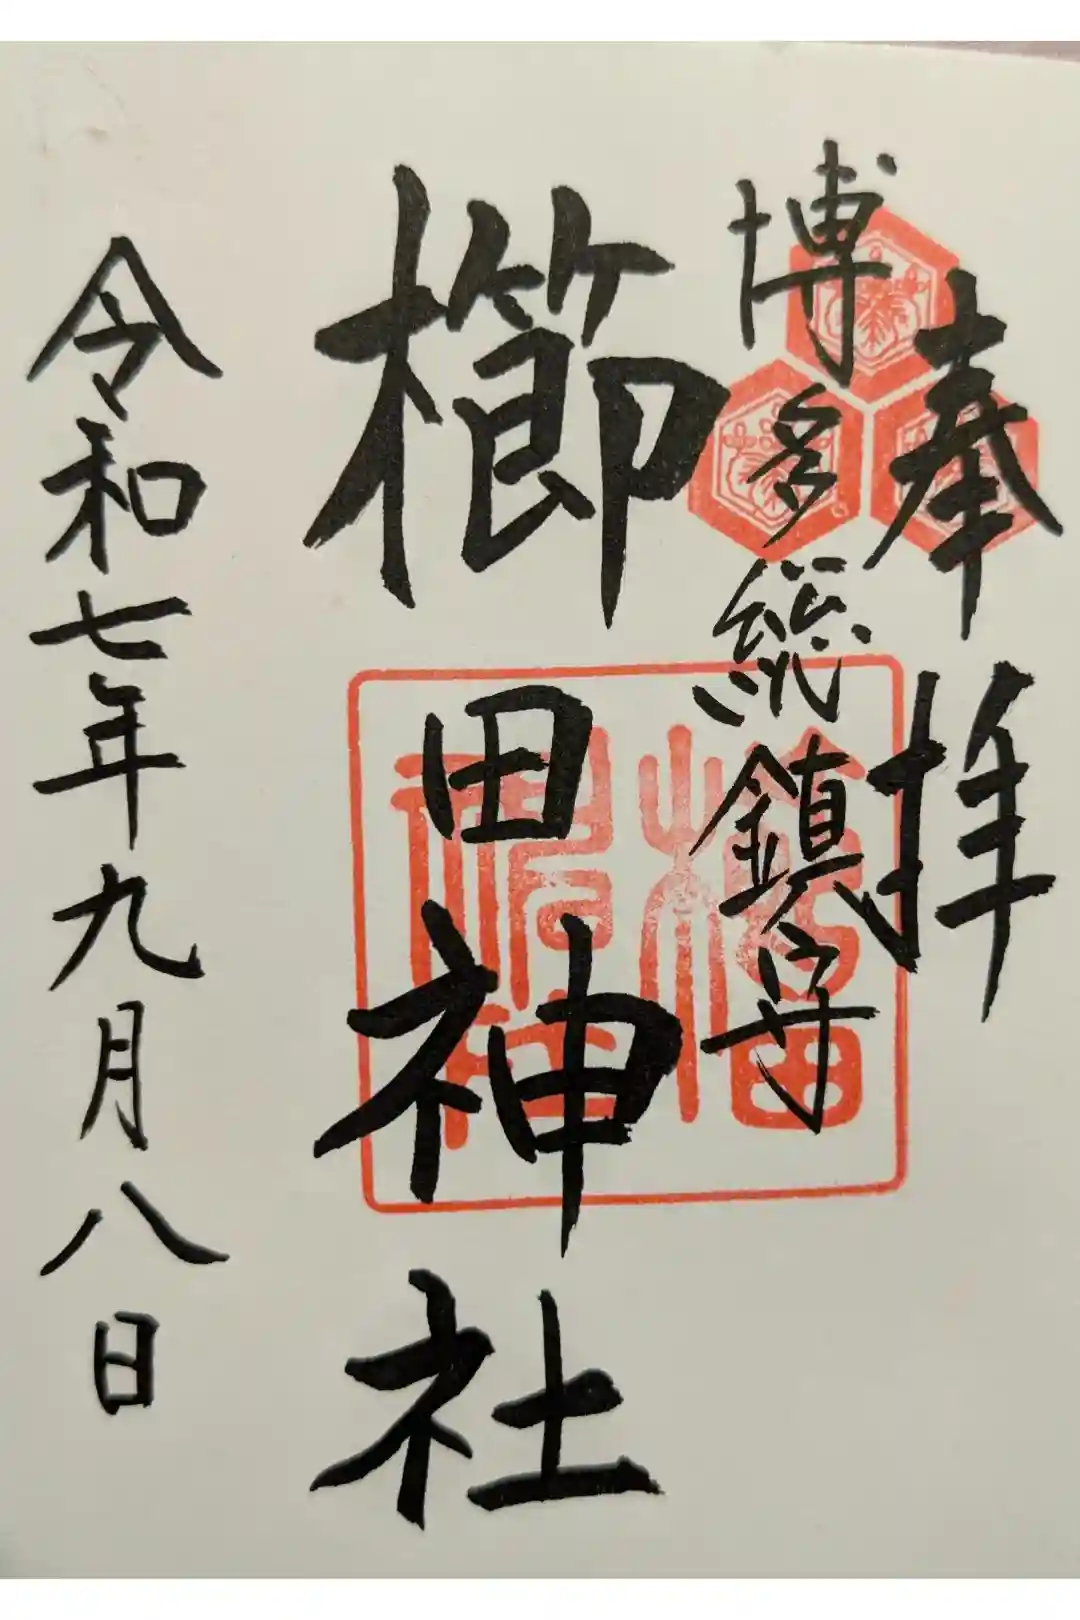 奉拝
博多総鎮守
櫛田神社
櫛田
神社
令和七年九月八日